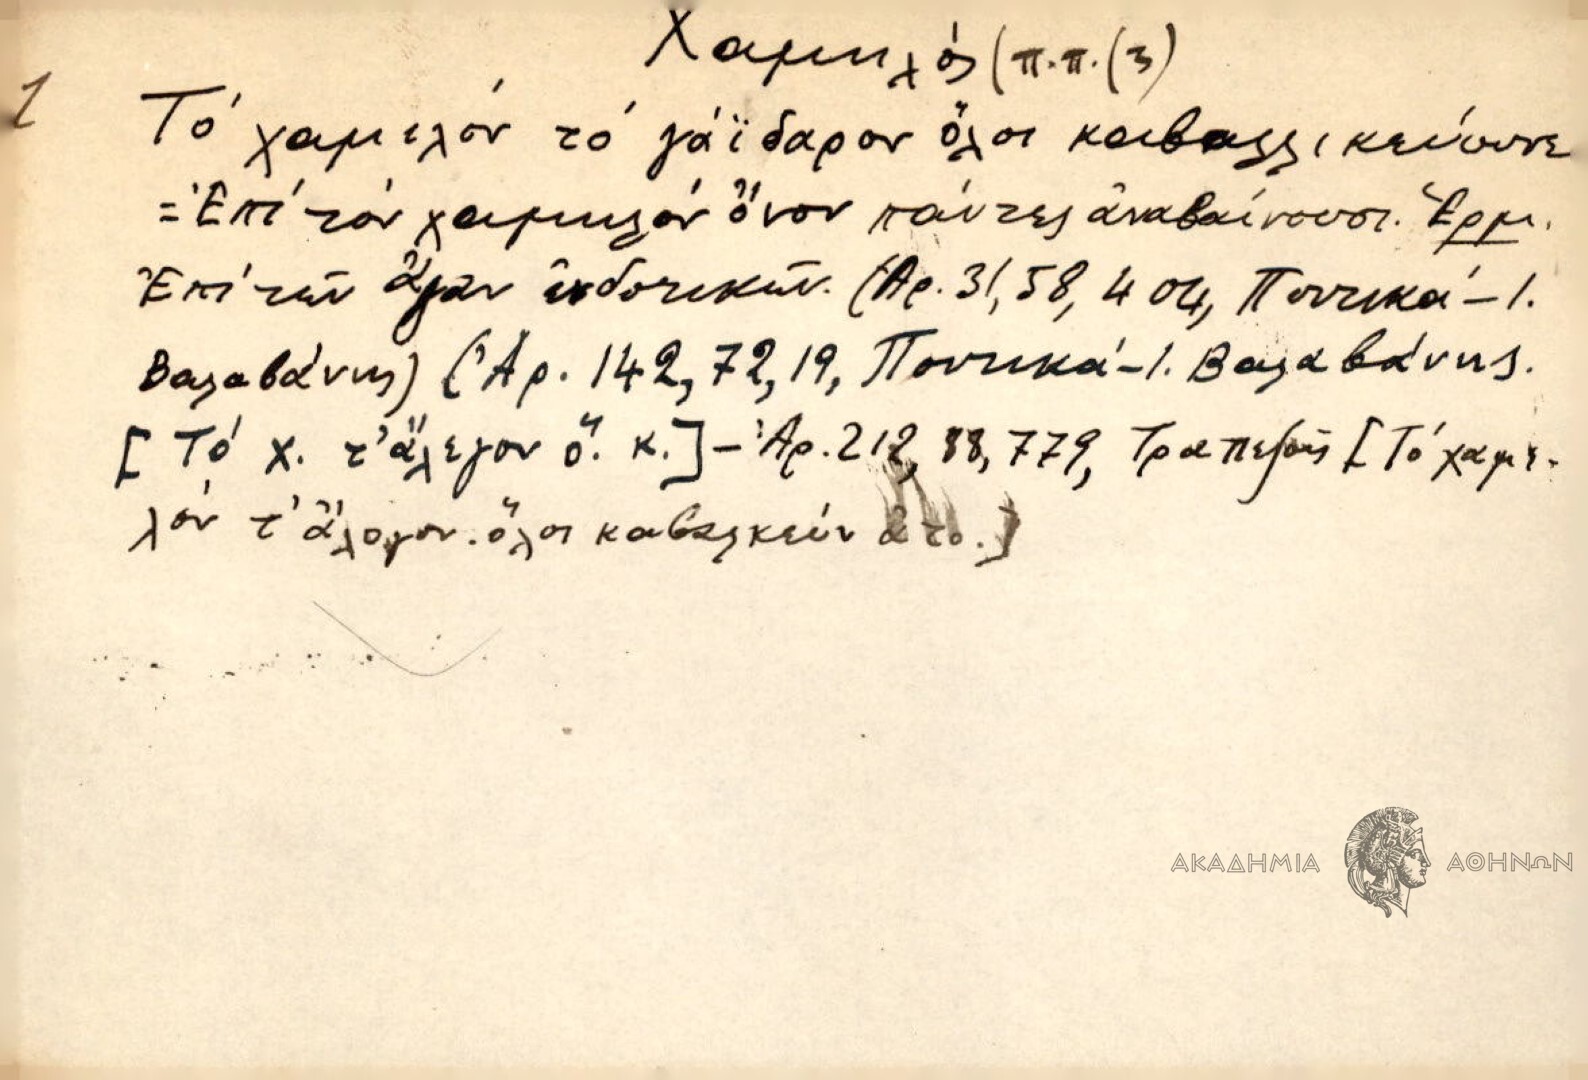 Χαμηλός (π.π. (3)
1
Τό χαμελόν τό γάϊδαρον ὅλοι καβαλλικεύουνε
= Ἐπί τόν χαμηλόν ὄνον πάντες ἀναβαίνουσι. Ἑρμ.
Ἐπί τῶν ἄγαν ἐνδοτικῶν. (Ἀρ. 31, 58, 404, Ποντικά - Ι.
Βαλαβάνης) (Ἀρ. 142, 72, 19, Ποντικά - Ι. Βαλαβάνης.
[Τό χ. τ' ἄλεγον ὅ. κ.] - Ἀρ. 212, 88, 779, Τραπεζοῦς [Τό χαμε-
λόν τ' ἄλογον ὅλοι καβαλκεύν ἀτο.]
ΑΚΑΔΗΜΙΑ ΑΘΗΝΩΝ